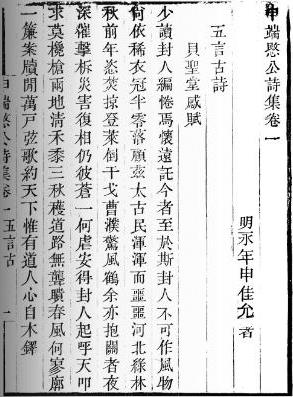 申端愍公詩集卷一
明永年申佳允著
五言古詩
見聖堂感賦
少讀封人編惓焉懷遠託今者至於斯封人不可作風物
何依稀衣冠半零落顧茲太古民渾渾而噩噩河北綠林
秋前年恣焚掠登萊倒干戈曹濮驚風鶴余亦抱關者夜
深催擊柝災害復相仍彼蒼一何虐安得封人起呼天叩
求莫欃槍兩地清禾黍三秋穫道路無聾瞶春風何寥廓
一簾案牘閒萬戸弦歌約天下惟有道人心自木鐸
申端愍公詩集卷一 五言古 一